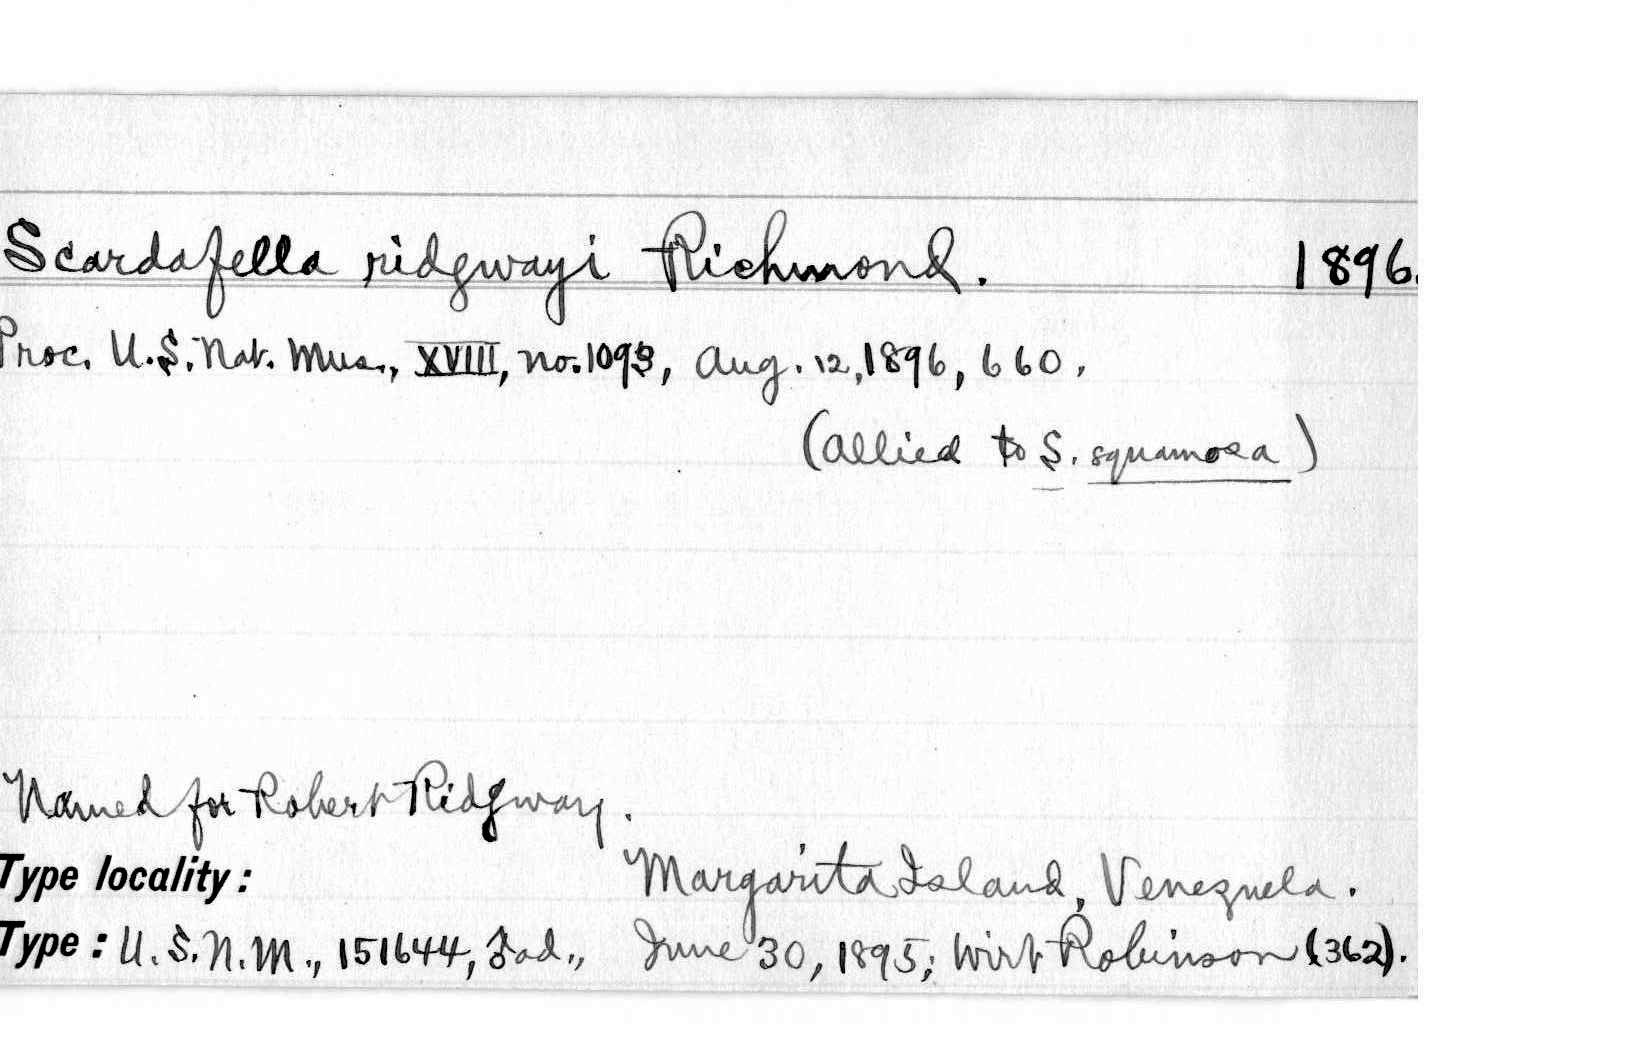 Scardafella ridgwayi Richmond. 1896.
Proc. U.S. Nat. Mus., XVIII, no. 1093, Aug. 12, 1896, 660.
(allied to S. squamosa)
Named for Robert Ridgway.
Type locality: Margarita Island, Venezuela.
Type: U.S.N.M., 151644, ad., June 30, 1895; Wirt Robinson (362).